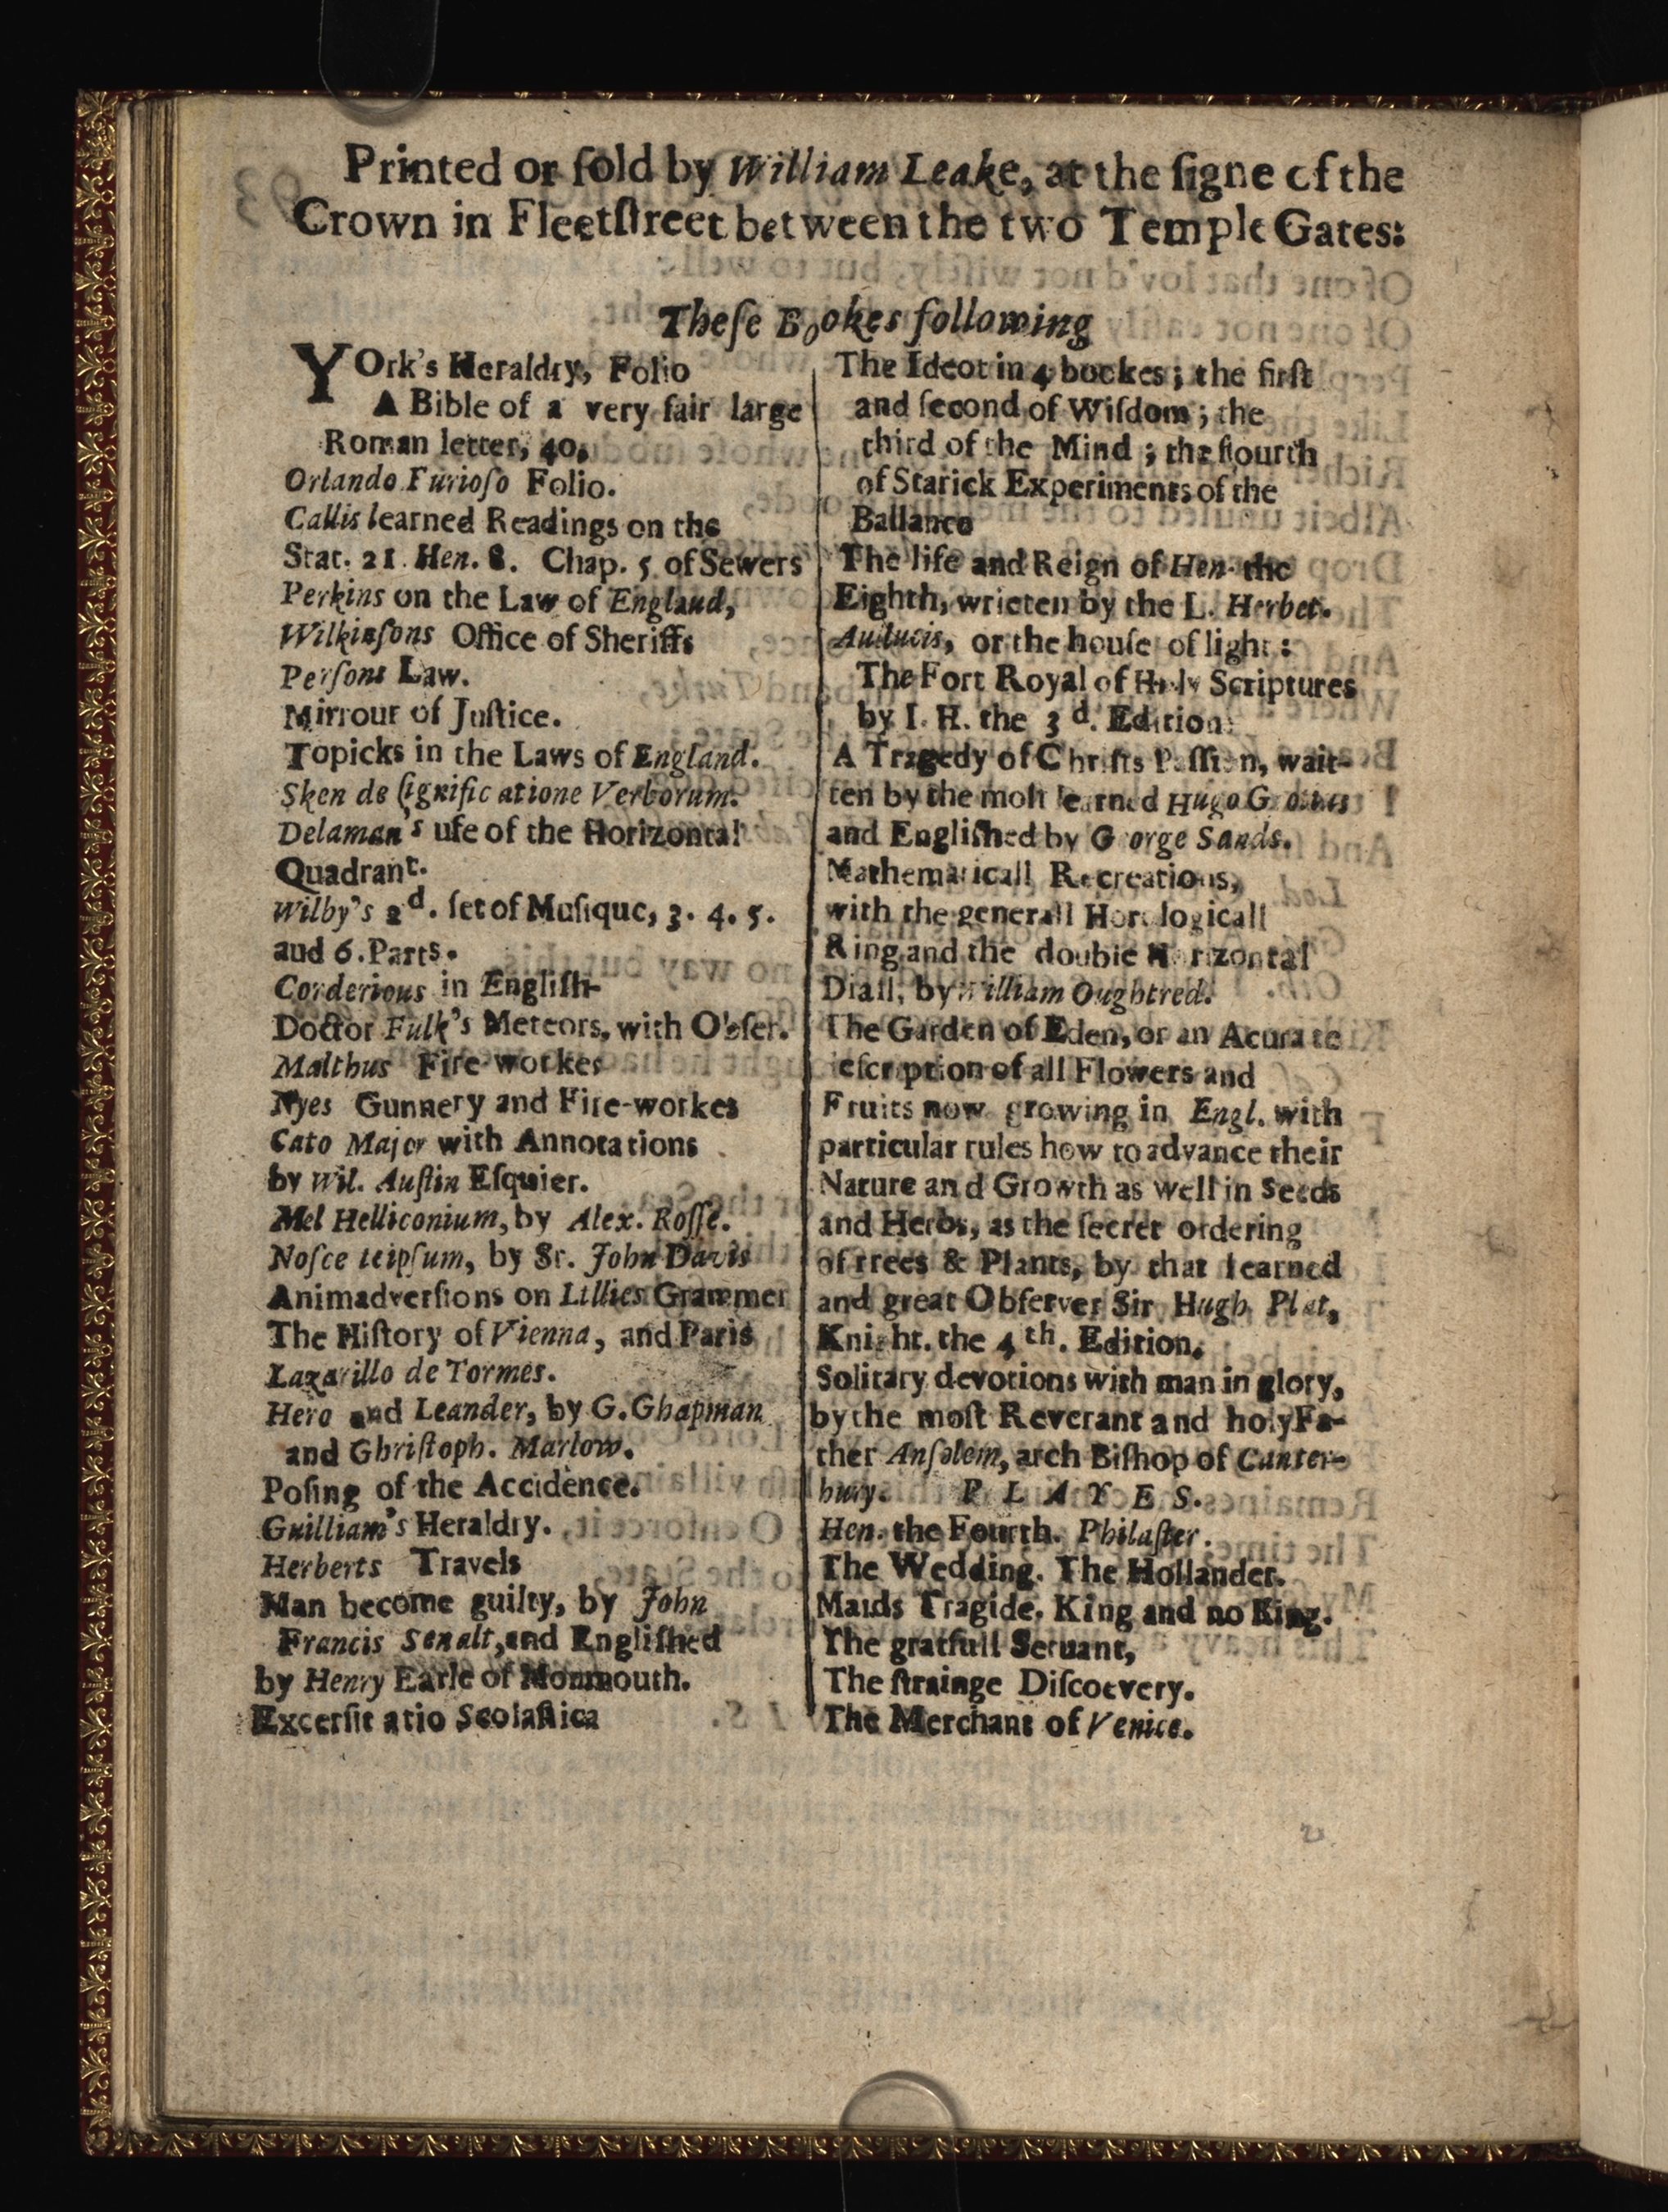 Printed or ſold by William Leake, at the ſigne of the
Crown in Fleetſtreet between the two Temple Gates:
Theſe Bookes following
YOrk's Heraldry, Folio
A Bible of a very fair large
Roman letter, 40.
Orlando Furioſo Folio.
Callis learned Readings on the
Stat. 21. Hen. 8. Chap. 5 of Sewers
Perkins on the Law of England,
Wilkinſons Office of Sheriffs
Perſons Law.
Mirrour of Juſtice.
Topicks in the Laws of England.
Sken de ſignific atione Verborum.
Delaman's uſe of the Horizontal
Quadrant.
Wilby's 2d. ſet of Muſique, 3. 4. 5.
aud 6. Parts.
Corderious in Engliſh-
Doctor Fulk's Meteors, with Obſer.
Malthus Fire-workes
Nyes Gunnery and Fire-workes
Cato Major with Annotations
by Wil. Auſtin Eſquier.
Mel Helliconium, by Alex. Roſſe.
Noſce teipſum, by Sr. John Davis
Animadverſions on Lillies Grammer
The Hiſtory of Vienna, and Paris
Lazarillo de Tormes.
Hero and Leander, by G. Ghapman
and Ghriſtoph. Marlow.
Poſing of the Accidence.
Guilliam's Heraldry.
Herberts Travels
Man become guilty, by John
Francis Senalt, and Engliſhed
by Henry Earle of Monmouth.
Excerſit atio Scolaſtica
The Ideot in 4 bookes; the firſt
and ſecond of Wiſdom; the
third of the Mind; the fourth
of Starick Experiments of the
Ballance
The life and Reign of Hen. the
Eighth, wrieten by the L. Herbet.
Aullucis, or the houſe of light:
The Fort Royal of Holy Scriptures
by I. H. the 3d. Edition.
A Tragedy of Chriſts Paſſion, wait-
ten by the moſt learned Hugo Grotius
and Engliſhed by George Sands.
Mathematicall Recreations,
with the generall Horologicall
Ring and the double Horizontal
Diall, by William Oughtred.
The Garden of Eden, or an Acurate
deſcription of all Flowers and
Fruits now growing in Engl. with
particular rules how to advance their
Nature and Growth as well in Seeds
and Herbs, as the ſecret ordering
of trees & Plants, by that learned
and great Obſerver Sir Hugh Plat,
Knight. the 4th. Edition.
Solitary devotions with man in glory,
by the moſt Reverant and holy Fa-
ther Anſolem, arch Biſhop of Canter-
bury. PLAYES.
Hen. the Fourth. Philaſter.
The Wedding. The Hollander.
Maids Tragide. King and no King.
The gratfull Seruant,
The ſtrainge Diſcoevery.
The Merchant of Venice.